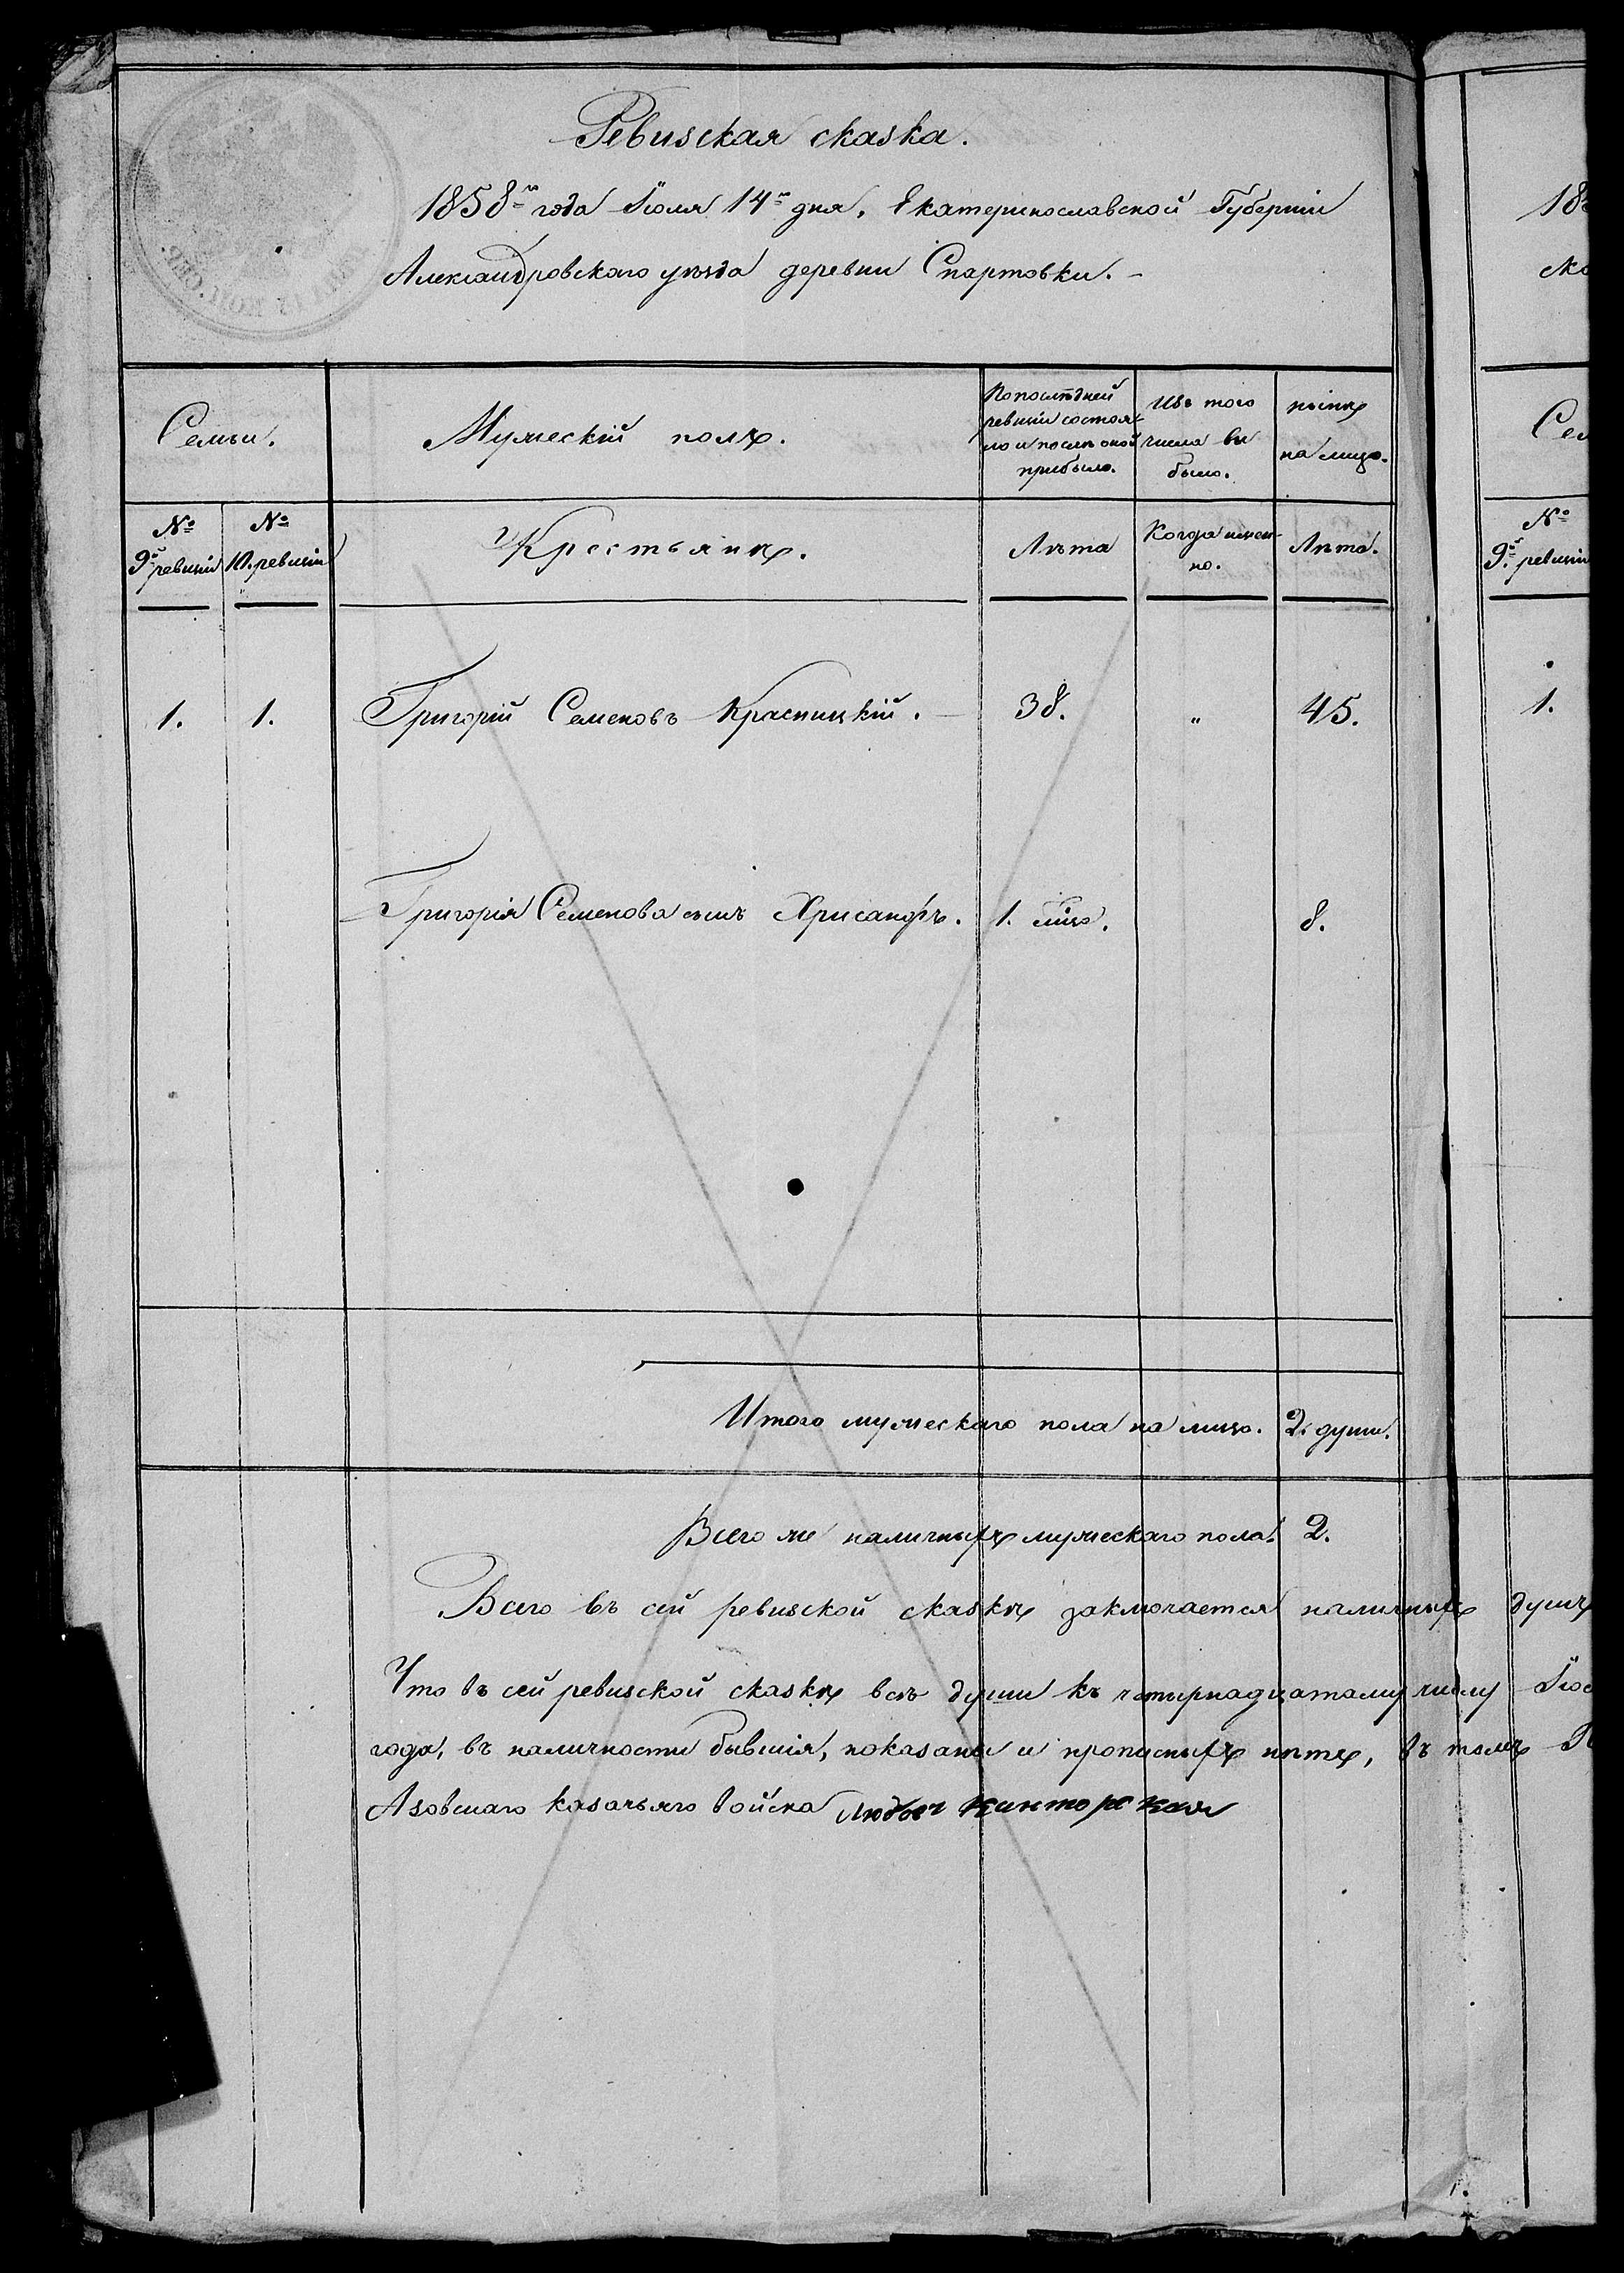 Ревизская сказка.
1858го года Іюля 14го дня. Екатеринославской Губерніи
Александровскаго уѣзда деревни Спартовки.
Семьи.
Мужескій полъ.
По послѣдней ревизіи состояло и послѣ оной прибыло.
Изъ того числа выбыло.
нынѣ на лицо.
№ 9й ревизіи
№ 10. ревизіи
Крестьянъ.
Лѣта
Когда именно.
Лѣта.
1. 1. Григорій Семеновъ Красницкій. 38. „ 45.
Григорія Семенова сынъ Хрисанфъ. 1. 8.
Итого мужескаго пола на лицо. 2. души.
Всего же наличныхъ мужескаго пола. 2.
Всего въ сей ревизской сказкѣ заключается наличныхъ душъ
Что въ сей ревизской сказкѣ всѣ души къ четырнадцатому числу Iю
года, въ наличности бывшія, показаны и прописныхъ нѣтъ, въ томъ
Азовскаго казачьяго войска
18
ска
Сем
№ 9й ревизіи
1.